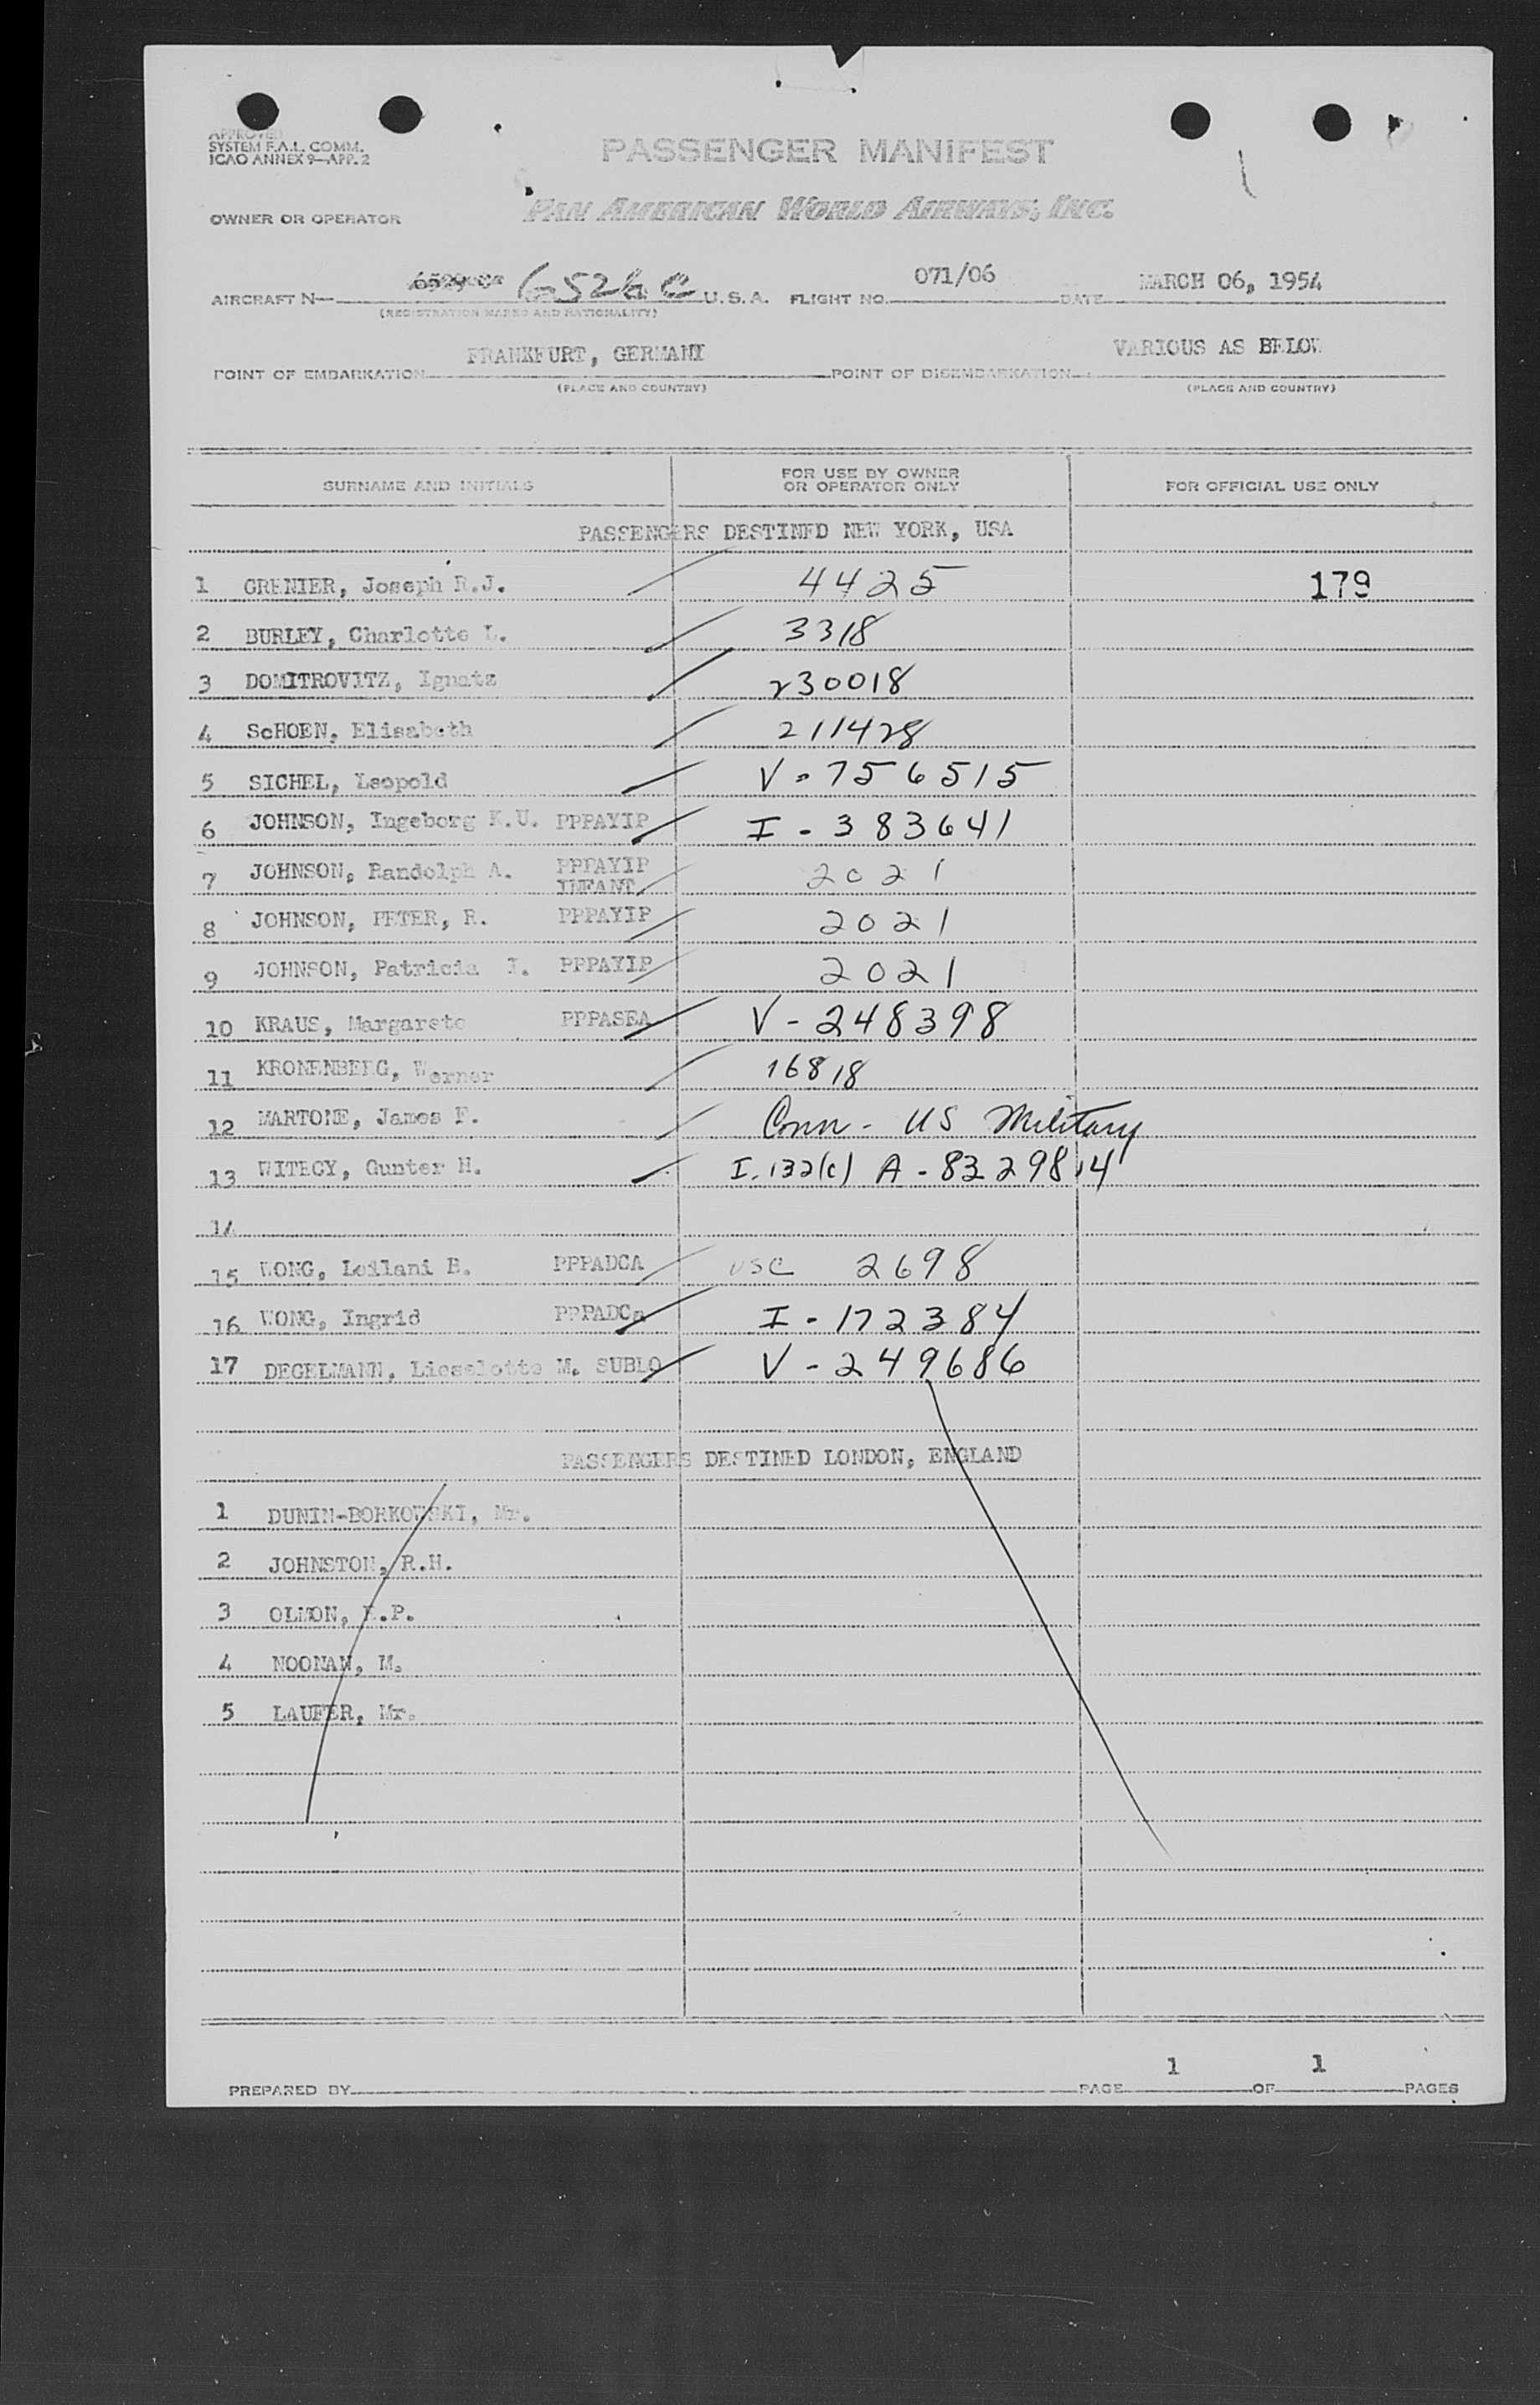 APPROVED
SYSTEM F.A.L. COMM.
ICAO ANNEX 9—APP. 2
PASSENGER MANIFEST
OWNER OR OPERATOR PAN AMERICAN WORLD AIRWAYS, INC.
AIRCRAFT N— 6526C U.S.A. FLIGHT NO. 071/06 DATE MARCH 06, 1954
(REGISTRATION MARKS AND NATIONALITY)
POINT OF EMBARKATION FRANKFURT, GERMANY POINT OF DISEMBARKATION VARIOUS AS BELOW
(PLACE AND COUNTRY) (PLACE AND COUNTRY)
SURNAME AND INITIALS FOR USE BY OWNER OR OPERATOR ONLY FOR OFFICIAL USE ONLY
PASSENGERS DESTINED NEW YORK, USA
1 GRENIER, Joseph R.J. 4425 179
2 BURLEY, Charlotte L. 3318
3 DOMITROVITZ, Ignatz 230018
4 ScHOEN, Elisabeth 211428
5 SICHEL, Leopold V-756515
6 JOHNSON, Ingeborg K.U. PPPAYIP I-383641
7 JOHNSON, Randolph A. PPPAYIP INFANT 2021
8 JOHNSON, PETER, R. PPPAYIP 2021
9 JOHNSON, Patricia I. PPPAYIP 2021
10 KRAUS, Margarete PPPASEA V-248398
11 KRONENBERG, Werner 16818
12 MARTONE, James F. Conn - US Military
13 WITECY, Gunter H. I.132(c) A-8329814
14
15 WONG, Leilani B. PPPADCA USC 2698
16 WONG, Ingrid PPPADCa I-172384
17 DEGELMANN, Lieselotte M. SUBLO V-249686
PASSENGERS DESTINED LONDON, ENGLAND
1 DUNIN-BORKOWSKI, Mr.
2 JOHNSTON, R.H.
3 OLMON, .P.
4 NOONAN, M.
5 LAUFER, Mr.
PREPARED BY PAGE 1 OF 1 PAGES